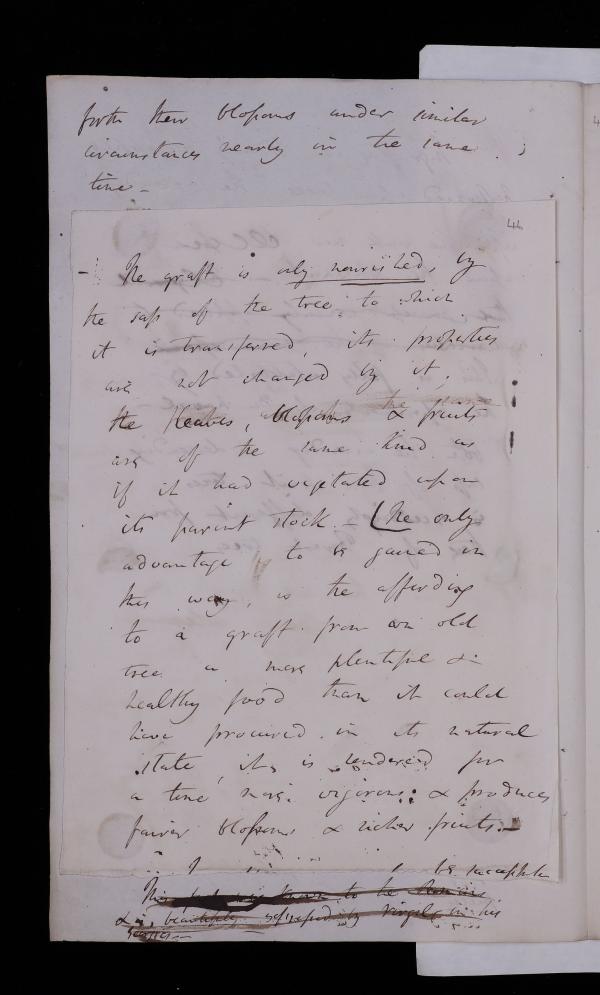 forth their blossoms under similar
circumstances nearly in the same
time –
44
– The graft is only nourished, by
the sap of the tree to which
it is transferred, its properties
are not changed by it,
the leaves, blossoms & fruits
are of the same kind as
if it had vegetated upon
its parent stock – (The only
advantage to be gained in
this way, is the affording
to a graft from an old
tree a more plentiful &
healthy food than it could
have procured in its natural
state, it is rendered for
a time more vigorous; & produces
fairer blossoms & richer fruits. –
be susceptible
This known to the Romans
& is beautifully by Virgil in his